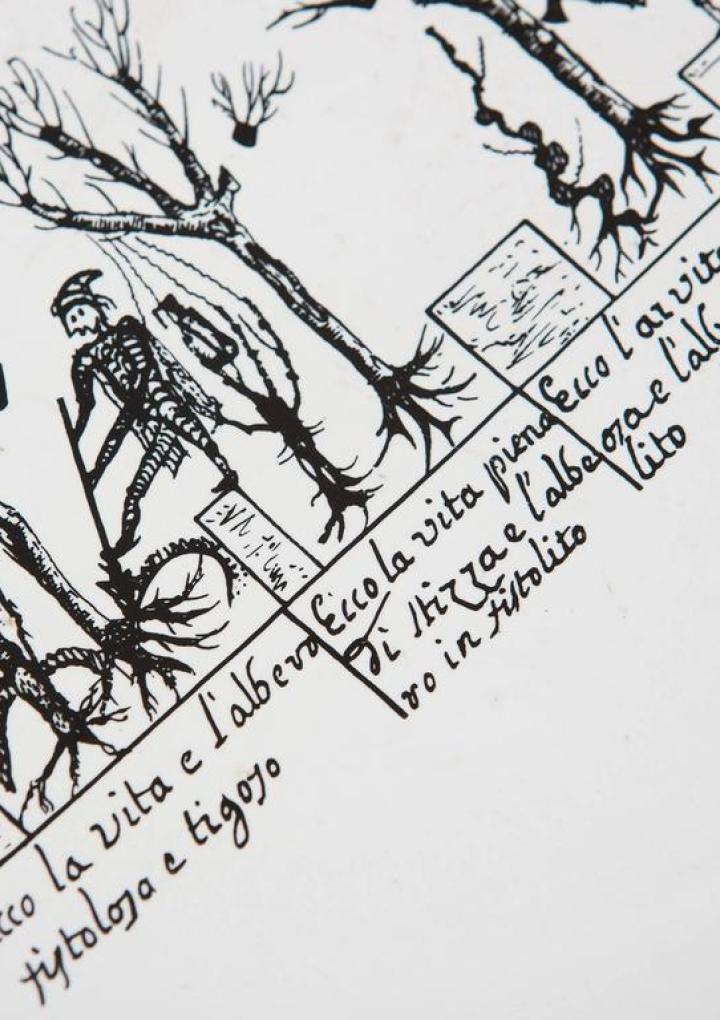 Ecco la vita e l'albero
fistolosa e tigoso
Ecco la vita piena
di stizza e l'albe
ro in fistolito
Ecco l'ar vita
osa e l'albe
lito